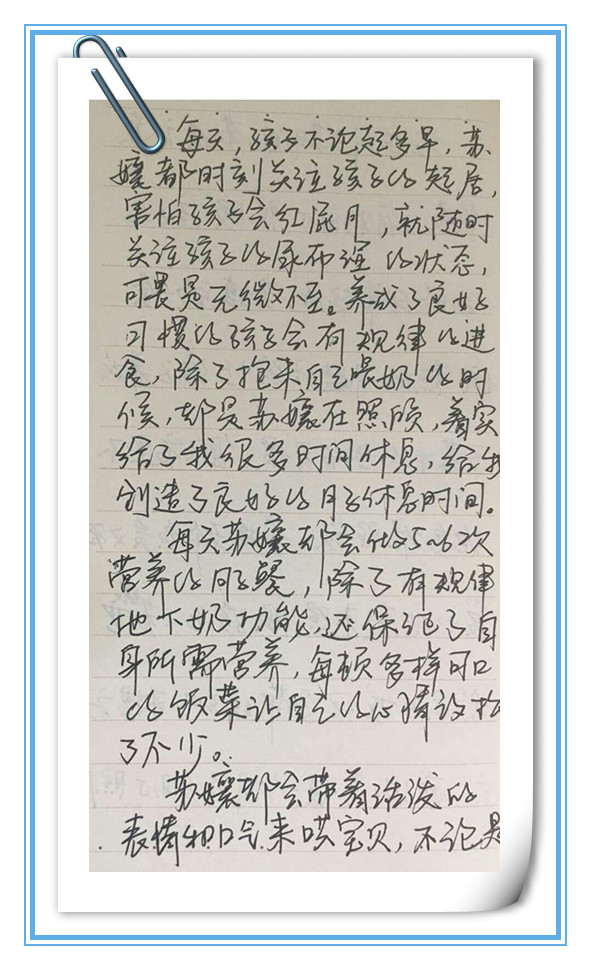 每天，孩子不论起多早，苏
嬢都时刻关注孩子的起居，
害怕孩子会红屁月，就随时
关注孩子的尿布湿的状态，
可畏是无微不至。养成了良好
习惯的孩子会有规律的进
食，除了抱来自己喂奶的时
候，却是苏嬢在照顾，着实
给了我很多时间休息，给我
创造了良好的月子休息时间。
每天苏嬢都会做5~6次
营养的月子餐，除了有规律
地下奶功能，还保证了自
身所需营养，每顿多样可口
的饭菜让自己的心情放松
了不少。
苏嬢都会带着活泼的
表情和口气来哄宝贝，不论是